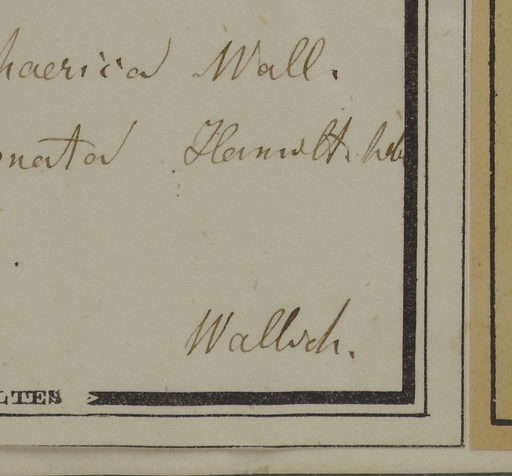 haerica Wall.
nata Hamilt. hb
Wallich.
LTES